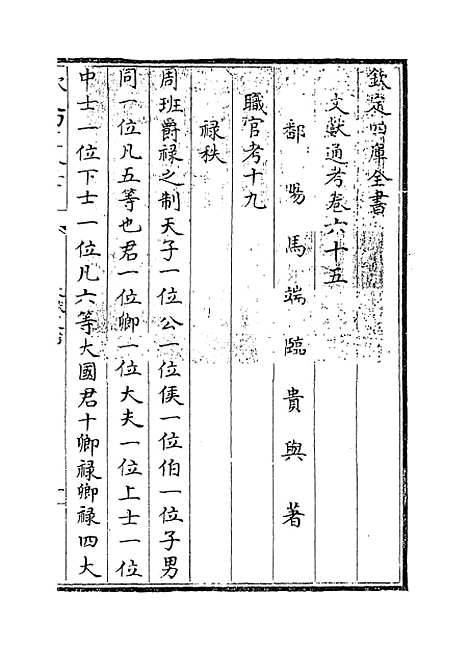 欽定四庫全書
文獻通考卷六十五
鄱陽馬端臨貴與著
職官考十九
祿秩
周班爵祿之制天子一位公一位侯一位伯一位子男
同一位凡五等也君一位卿一位大夫一位上士一位
中士一位下士一位凡六等大國君十卿祿卿祿四大